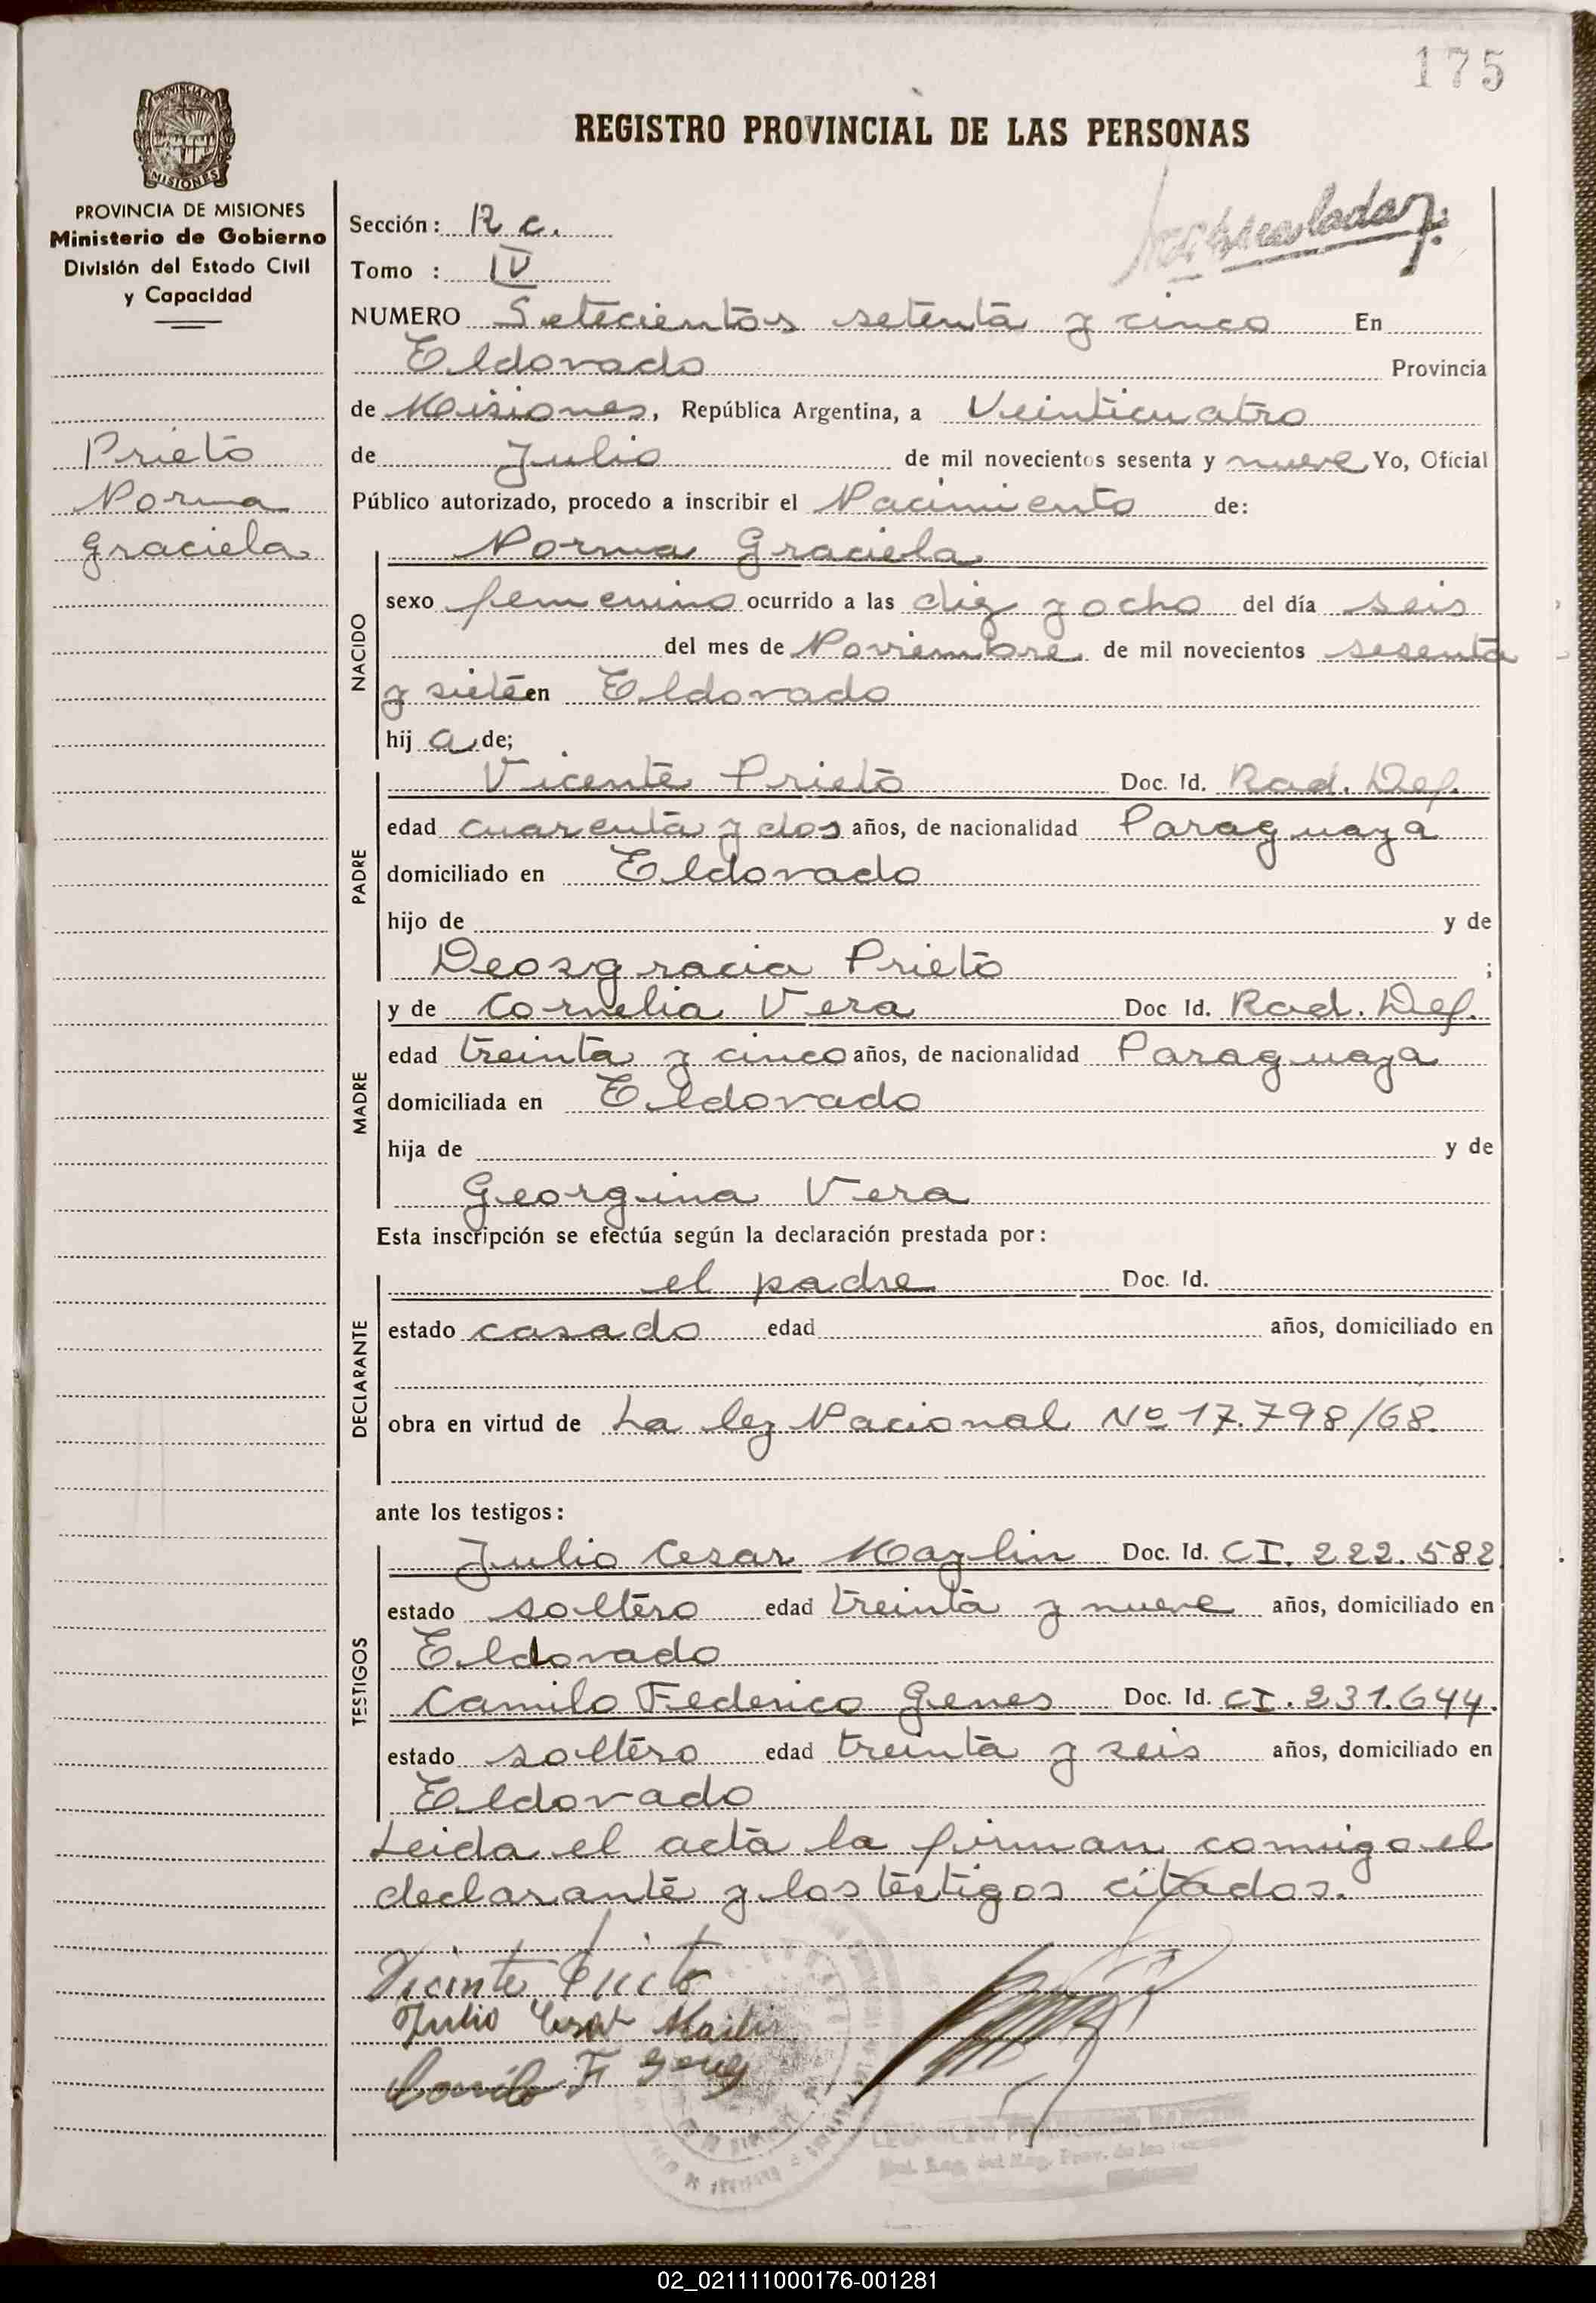 175
PROVINCIA DE MISIONES
REGISTRO PROVINCIAL DE LAS PERSONAS
PROVINCIA DE MISIONES
Ministerio de Gobierno
División del Estado Civil
y Capacidad
Prieto
Norma
Graciela
Sección: R c.
Tomo : IV
NUMERO Setecientos setenta y cinco En
Eldorado Provincia
de Misiones, República Argentina, a Veinticuatro
de Julio de mil novecientos sesenta y nueve Yo, Oficial
Público autorizado, procedo a inscribir el Nacimiento de:
Norma Graciela
NACIDO
sexo femenino ocurrido a las diez y ocho del día seis
del mes de Noviembre de mil novecientos sesenta
y siete en Eldorado
hij a de;
PADRE
Vicente Prieto Doc. Id. Rad. Def.
edad cuarenta y dos años, de nacionalidad Paraguaya
domiciliado en Eldorado
hijo de y de
Deosgracia Prieto ;
MADRE
y de Cornelia Vera Doc Id. Rad. Def.
edad treinta y cinco años, de nacionalidad Paraguaya
domiciliada en Eldorado
hija de y de
Georgina Vera
Esta inscripción se efectúa según la declaración prestada por:
DECLARANTE
el padre Doc. Id.
estado casado edad años, domiciliado en
obra en virtud de La ley Nacional Nº 17.798/68.
ante los testigos:
TESTIGOS
Julio Cesar Maylin Doc. Id. CI. 222.582
estado soltero edad treinta y nueve años, domiciliado en
Eldorado
Camilo Federico Genes Doc. Id. CI. 231.644.
estado soltero edad treinta y seis años, domiciliado en
Eldorado
Leida el acta la firman comigo el
declarante y los testigos citados.
Vicente Prieto
Julio Cesar
Camilo F
02_021111000176-001281